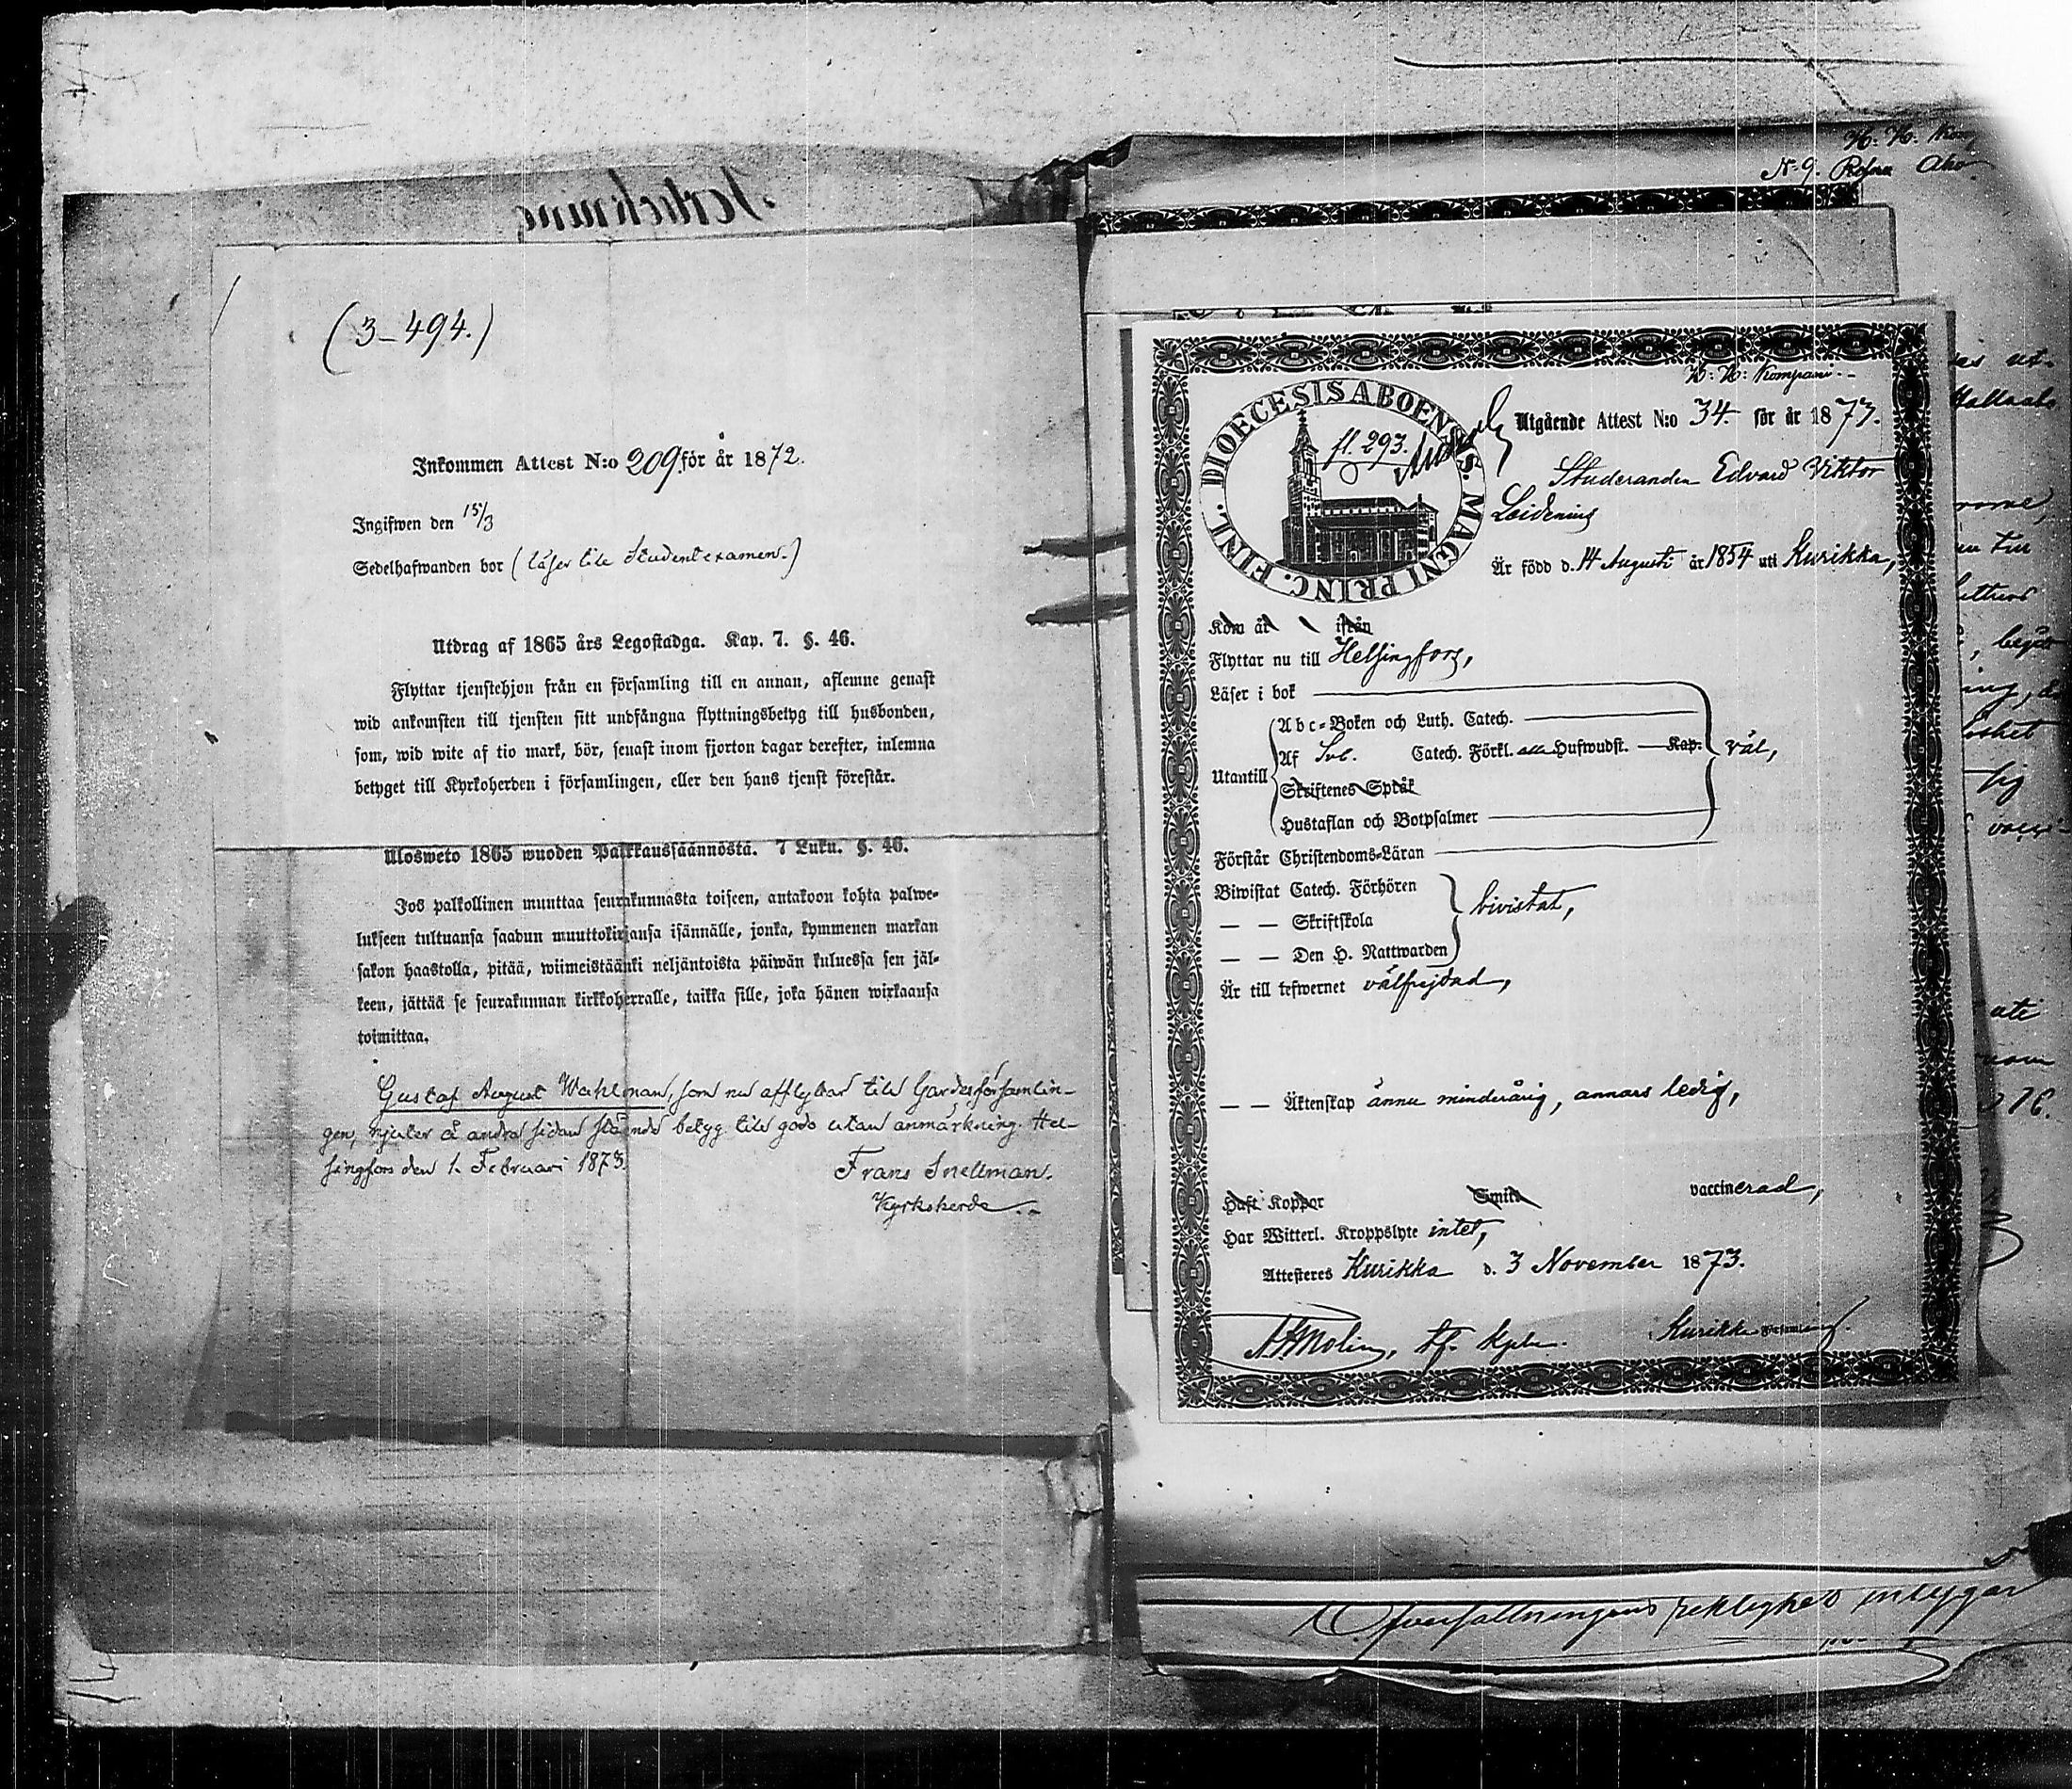 (3-494.)
Inkommen Attest N:o 209 för år 1872.
Ingifwen den 15/3
Sedelhafwanden bor (läser till Studentexamen.)
Utdrag af 1865 års Legostadga. Kap. 7. §. 46.
Flyttar tjenstehjon från en församling till en annan, aflemne genast
wid ankomsten till tjensten sitt undfångna flyttningsbetyg till husbonden,
som, wid wite af tio mark, bör, senast inom fjorton dagar derefter, inlemna
betyget till Kyrkoherden i församlingen, eller den hans tjenst förestår.
Ulosweto 1865 wuoden Palkkaussäännöstä. 7 Luku. §. 46.
Jos palkollinen muuttaa seurakunnasta toiseen, antakoon kohta palwe-
lukseen tultuansa saadun muuttokirjansa isännälle, jonka, kymmenen markan
sakon haastolla, pitää, wiimeistäänki neljäntoista päiwän kuluessa sen jäl-
keen, jättää se seurakunnan kirkkoherralle, taikka sille, joka hänen wirkaansa
toimittaa.
Gustaf August Wahlman, som nu afflyttar till Gardesförsamlin-
gen, njuter å andra sidan stående betyg till godo utan anmärkning. Hel-
singfors den 1. Februari 1873.
Frans Snellman.
Kyrkoherde
K. K. Komp
N. 9.
K: K: Kompani
DIOECESIS ABOENSIS. MAGNI PRINC. FINL.
fl. 293.
Utgående Attest N:o 34. för år 1873.
Studeranden Edvard Viktor
Leidenius
Är född d. 14 Augusti år 1854 uti Kurikka,
Kom år ifrån
Flyttar nu till Helsingfors,
Läser i bok
Utantill
Abc-Boken och Luth. Catech.
Af Sveb. Catech. Förkl. alla Hufwudst. Kap.
väl,
Skriftenes Språk
Hustaflan och Botpsalmer
Förstår Christendoms-Läran
Biwistat Catech. Förhören
— — Skriftskola
bivistat,
— — Den H. Nattwarden
Är till lefwernet välfrejdad,
— — Äktenskap ännu minderårig, annars ledig,
Haft Koppor Smitt vaccinerad,
Har Witterl. Kroppslyte intet,
Attesteras Kurikka d. 3 November 1873.
Molin, tf. Kpln. i Kurikka Församling.